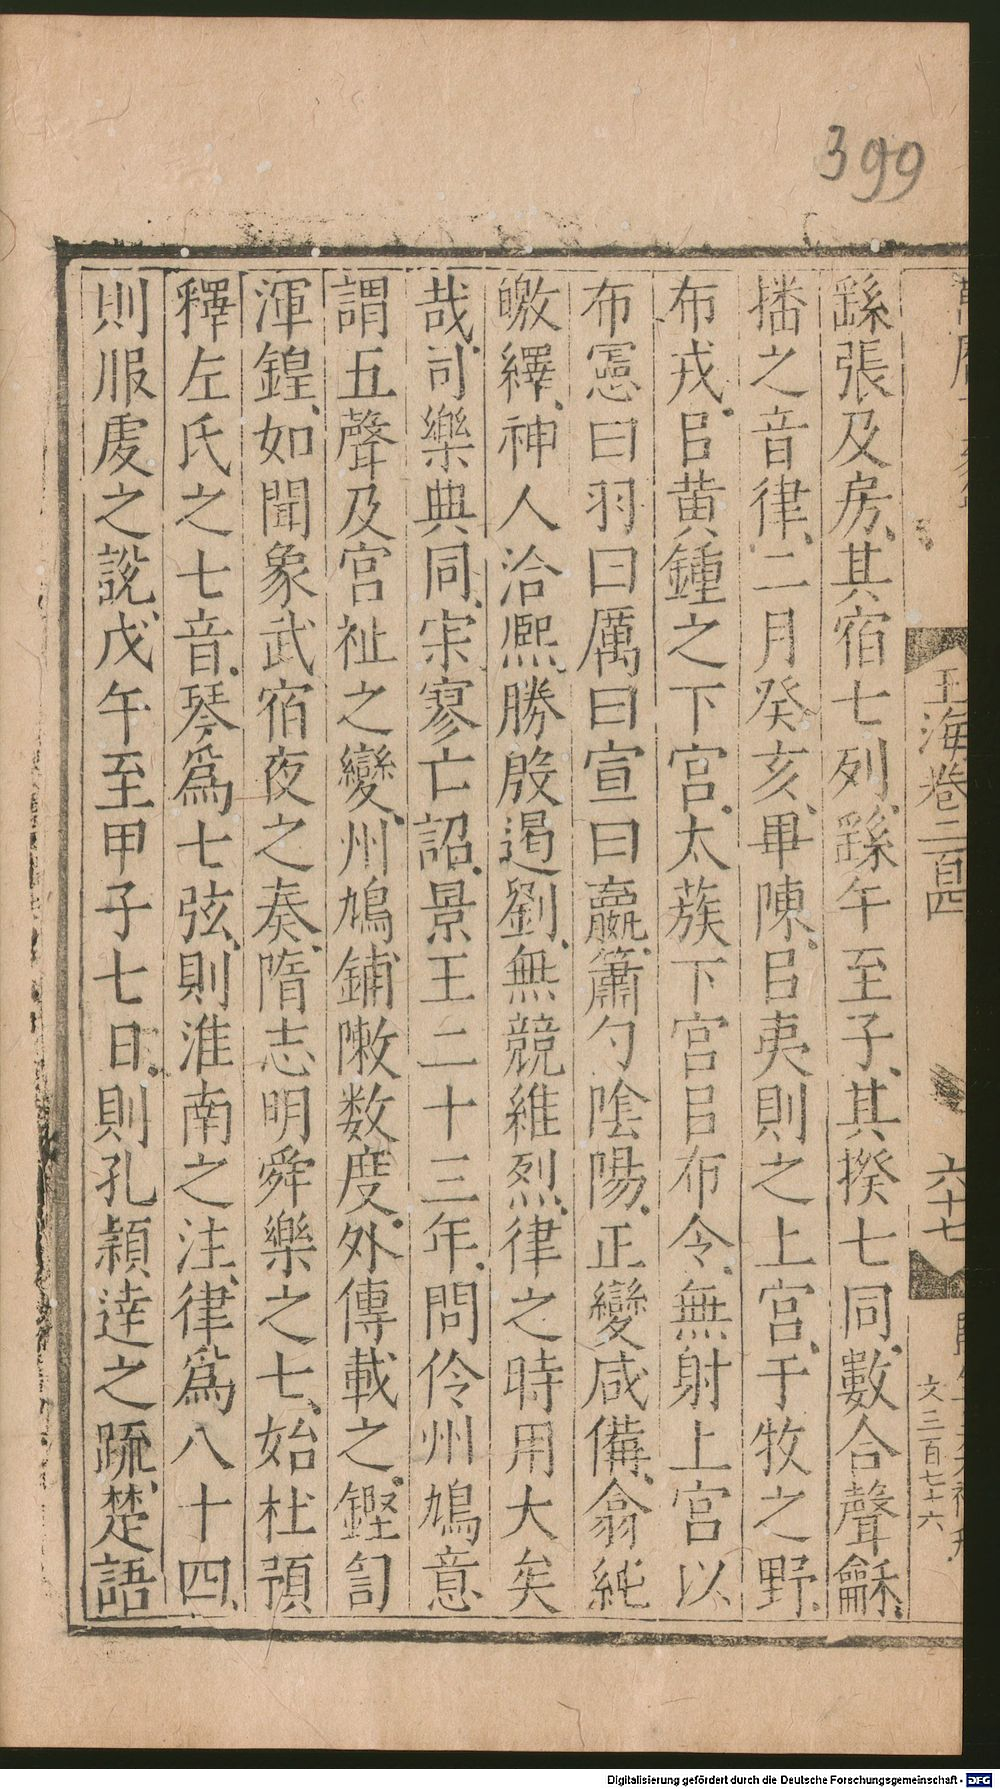 399
玉海卷二百四
六十七
文三百七十六
繇張及房其宿七列繇午至子其揆七同數合聲龢
播之音律二月癸亥畢陳㠯夷則之上宮于牧之野
布戎㠯黃鍾之下宮太蔟下宮㠯布令無射上宮以
布憲曰羽曰厲曰宣曰嬴簫勺陰陽正變咸備翕純
皦繹神人洽熈勝殷遏劉無競維烈律之時用大矣
哉司樂典同宗寥亡詔景王二十三年問伶州鳩意
謂五聲及宮祉之變州鳩鋪敶数度外傳載之鏗訇
渾鍠如聞象武宿夜之奏隋志明舜樂之七始杜預
釋左氏之七音琴爲七弦則淮南之注律爲八十四
則服䖍之說戊午至甲子七日則孔穎達之䟽楚語
Digitalisierung gefördert durch die Deutsche Forschungsgemeinschaft - DFG